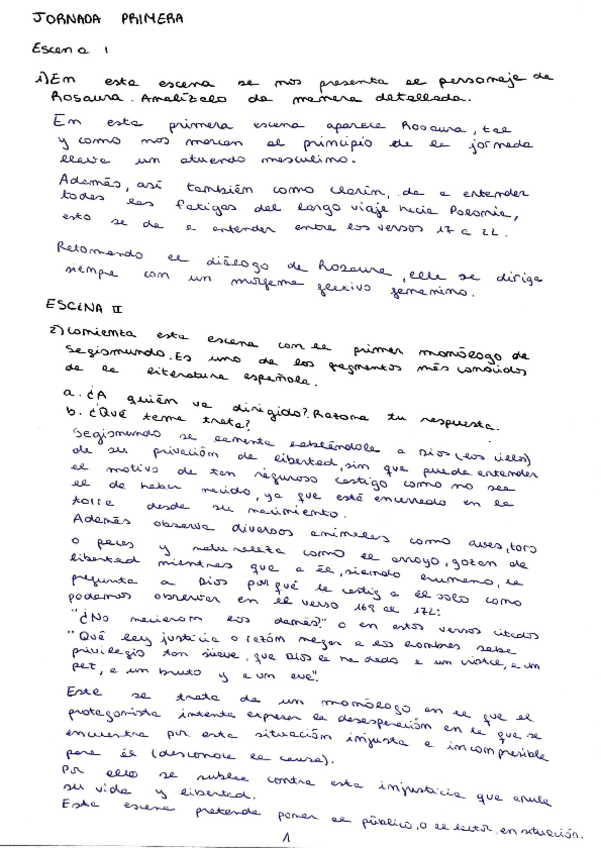 JORNADA PRIMERA
Escena 1
1) En esta escena se nos presenta el personaje de
Rosaura. Analízelo de manera detallada.
En esta primera escena aparece Rosaura, tal
y como nos marcan al principio de la jornada
lleva un atuendo masculino.
Además, así también como Clarín, da a entender
todas las fatigas del largo viaje hacia Polonia,
esto se da a entender entre los versos 17 a 22.
Retomando el diálogo de Rosaura, ella se dirige
siempre con un morfema flexivo femenino.
ESCENA II
2) Comienza esta escena con el primer monólogo de
Segismundo. Es uno de los fragmentos más conocidos
de la literatura española.
a. ¿A quién va dirigido? Razona tu respuesta.
b. ¿Qué tema trata?
Segismundo se lamenta hablándole a Dios (los cielos)
de su privación de libertad, sin que pueda entender
el motivo de tan riguroso castigo como no sea
el de haber nacido, ya que está encerrado en la
torre desde su nacimiento.
Además observa diversos animales como aves, toro
o peces y naturaleza como el arroyo, gozan de
libertad mientras que a él, siendo humano, le
pregunta a Dios por qué le castig a él solo como
podemos observar en el verso 169 al 172:
"¿No nacieron los demás?" o en estos versos citados
"Qué ley justicia o razón negar a los hombres sabe
privilegio tan suave, que Dios le ha dado a un cristal, a un
pez, a un bruto y a un ave".
Este se trata de un monólogo en el que el
protagonista intenta expresar la desesperación en la que se
encuentra por esta situación injusta e incompresible
para él (desconoce la causa).
Por ello se rublea contra esta injusticia que anula
su vida y libertad.
Esta escena pretende poner al público, o al lector, en situación.
1